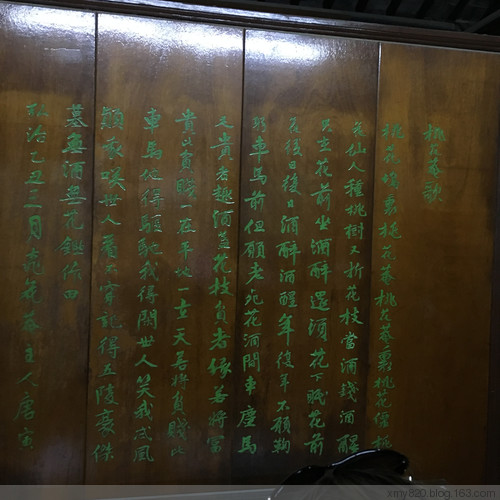 桃花菴歌
桃花塢裏桃花菴桃花菴裏桃花僊桃
花仙人種桃樹又折花枝當酒錢酒醒
只在花前坐酒醉還須花下眠花前
花後日復日酒醉酒醒年復年不願鞠
躬車馬前但願老死花酒間車塵馬
足貴者趣酒盞花枝貧者緣若將富
貴比貧賤一在平地一在天若將貧賤比
車馬他得驅馳我得閒世人笑我忒風
顛我咲世人看不穿記得五陵豪傑
墓無酒無花鋤作田
弘治乙丑三月桃花菴主人唐寅
xmy820.blog.163.com